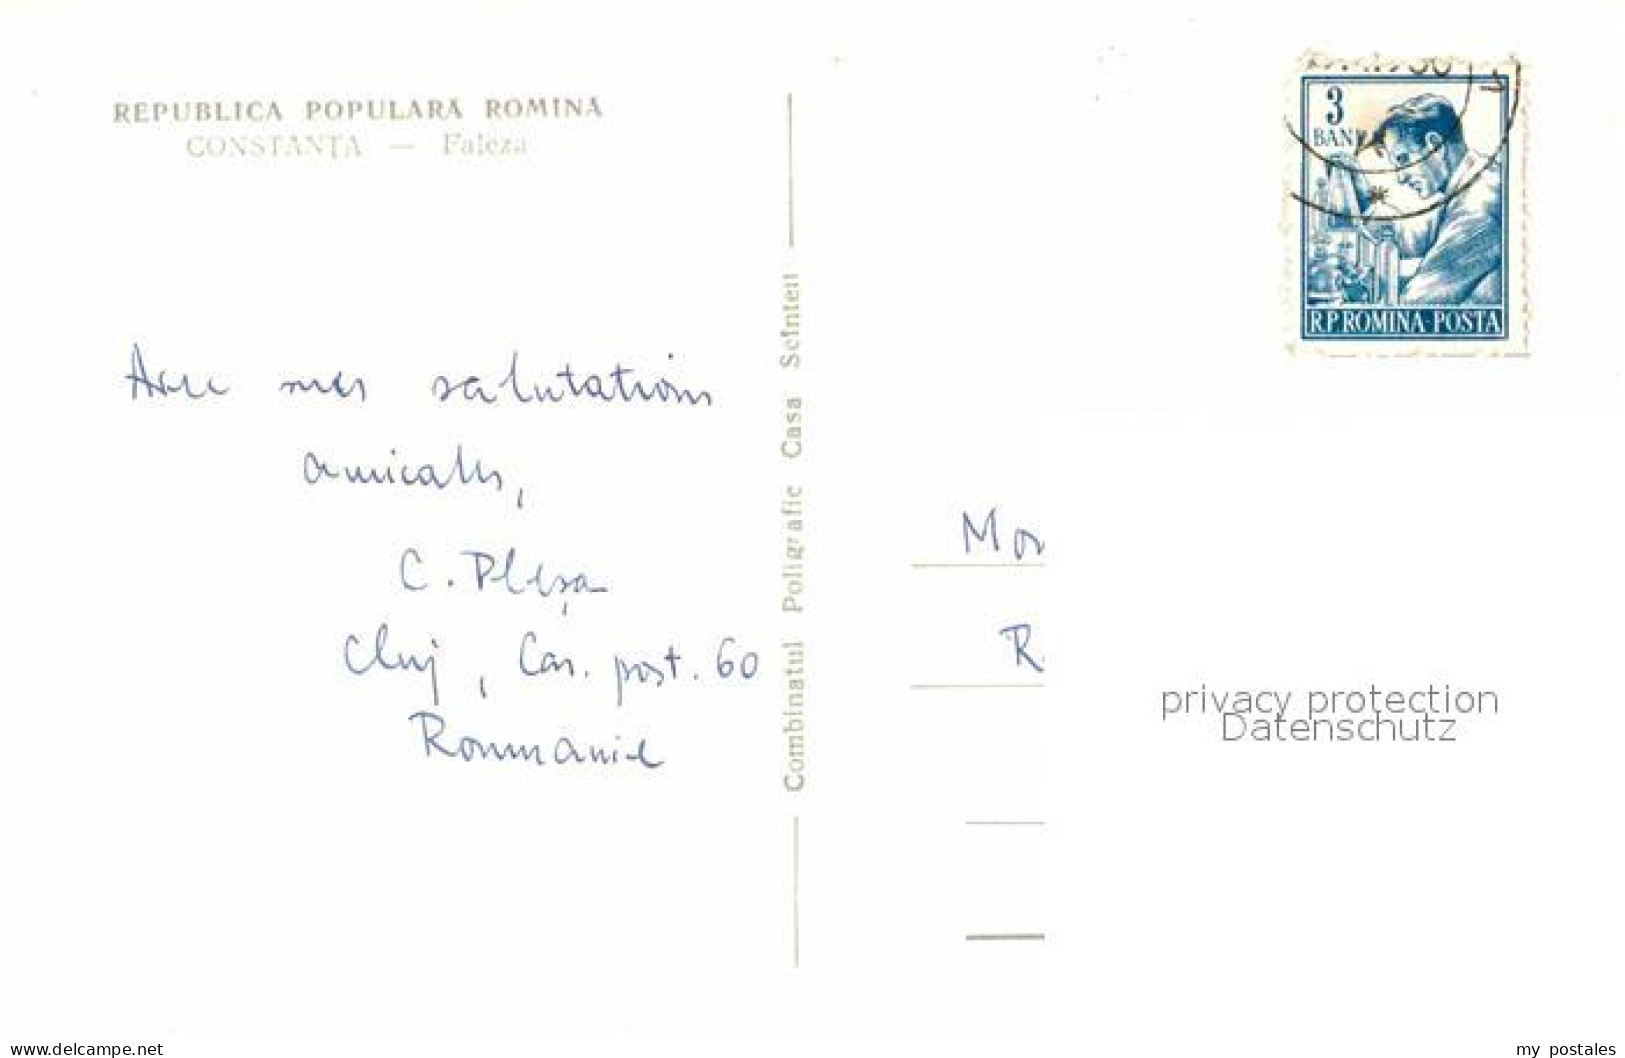 REPUBLICA POPULARĂ ROMINĂ
CONSTANŢA — Faleza
Avec mes salutations
amicales,
C. Pleşa
Cluj, Cas. post. 60
Roumanie
Combinatul Poligrafic Casa Scînteii
3
BANI
R.P.ROMINA·POSTA
Mon
R.
privacy protection
Datenschutz
www.delcampe.net
my postales